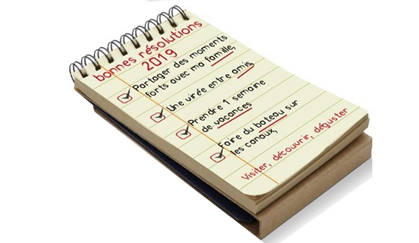 bonnes résolutions
2019
Partager des moments
forts avec ma famille,
Une virée entre amis
Prendre 1 semaine
de vacances
Faire du bateau sur
les canaux,
Visiter, découvrir, déguster